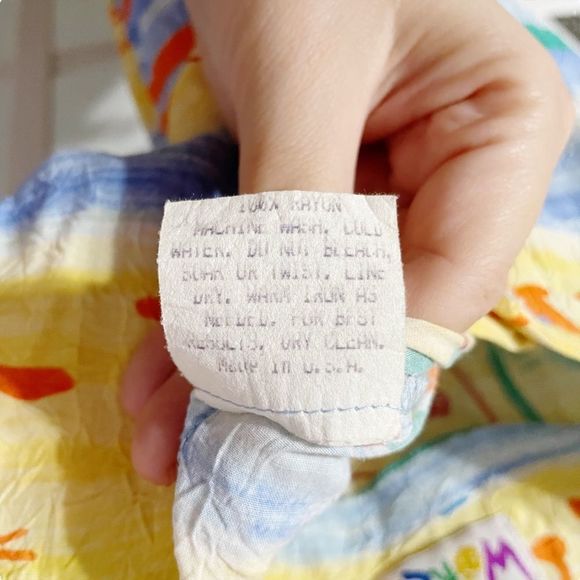 100% RAYON
MACHINE WASH, COLD
WATER. DO NOT BLEACH,
SOAK OR TWIST. LINE
DRY. WARM IRON AS
NEEDED. FOR BEST
RESULTS, DRY CLEAN.
MADE IN U.S.A.